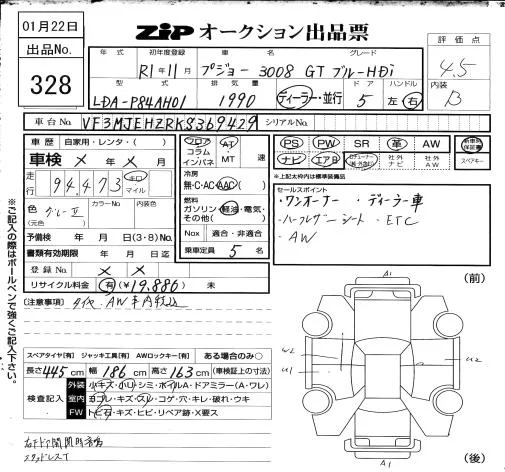 01月22日
ZIP オークション出品票
出品No.
328
年式 初年度登録 車名 グレード
R1年11月 プジョー 3008 GT ブルーHDi
型式 排気量 ドア ハンドル
LDA-P84AH01 1990 ディーラー・並行 5 左・右
評価点
4.5
内装
B
車台No VF3MJEHZRKS369429 シリアルNo.
車歴 自家用・レンタ・( )
車検 × 年 × 月
走行 94,473 キロ マイル
色 グレーⅡ (元色) カラーNo 内装色
予備検 年 月 日(3・8)No.
書類有効期限 年 月 日迄
登録No. × ×
リサイクル料金 有(¥19,886) 未
フロア コラム インパネ AT・MT 速
冷房 無・C・AC・AAC( )
燃料 ガソリン・軽油・電気・その他( )
Nox 適合・非適合
乗車定員 5 名
PS PW SR 革 AW
ナビ エアB 社外ナビ 社外AW スペアキー
*上記太枠内は標準装備品
セールスポイント
・ワンオーナー ・ディーラー車
・ハーフレザーシート ・ETC
・AW
(注意事項)
スペアタイヤ[有] ジャッキ工具[有] AWロックキー[有] ある場合のみ○
長さ 445 cm 幅 186 cm 高さ 163 cm (車検証上の寸法)
検査記入
外装 小キズ・小凹・シミ・ホイルA・ドアミラー(A・ワレ)
室内 ヨゴレ・キズ・スレ・コゲ・穴・キレ・破れ・ウキ
FW トビ石・キズ・ヒビ・リペア跡・X要ス
スタッドレスT
※ご記入の際はボールペンで強くご記入下さい。
(前)
A1
W2
U1
U2
A1
(後)